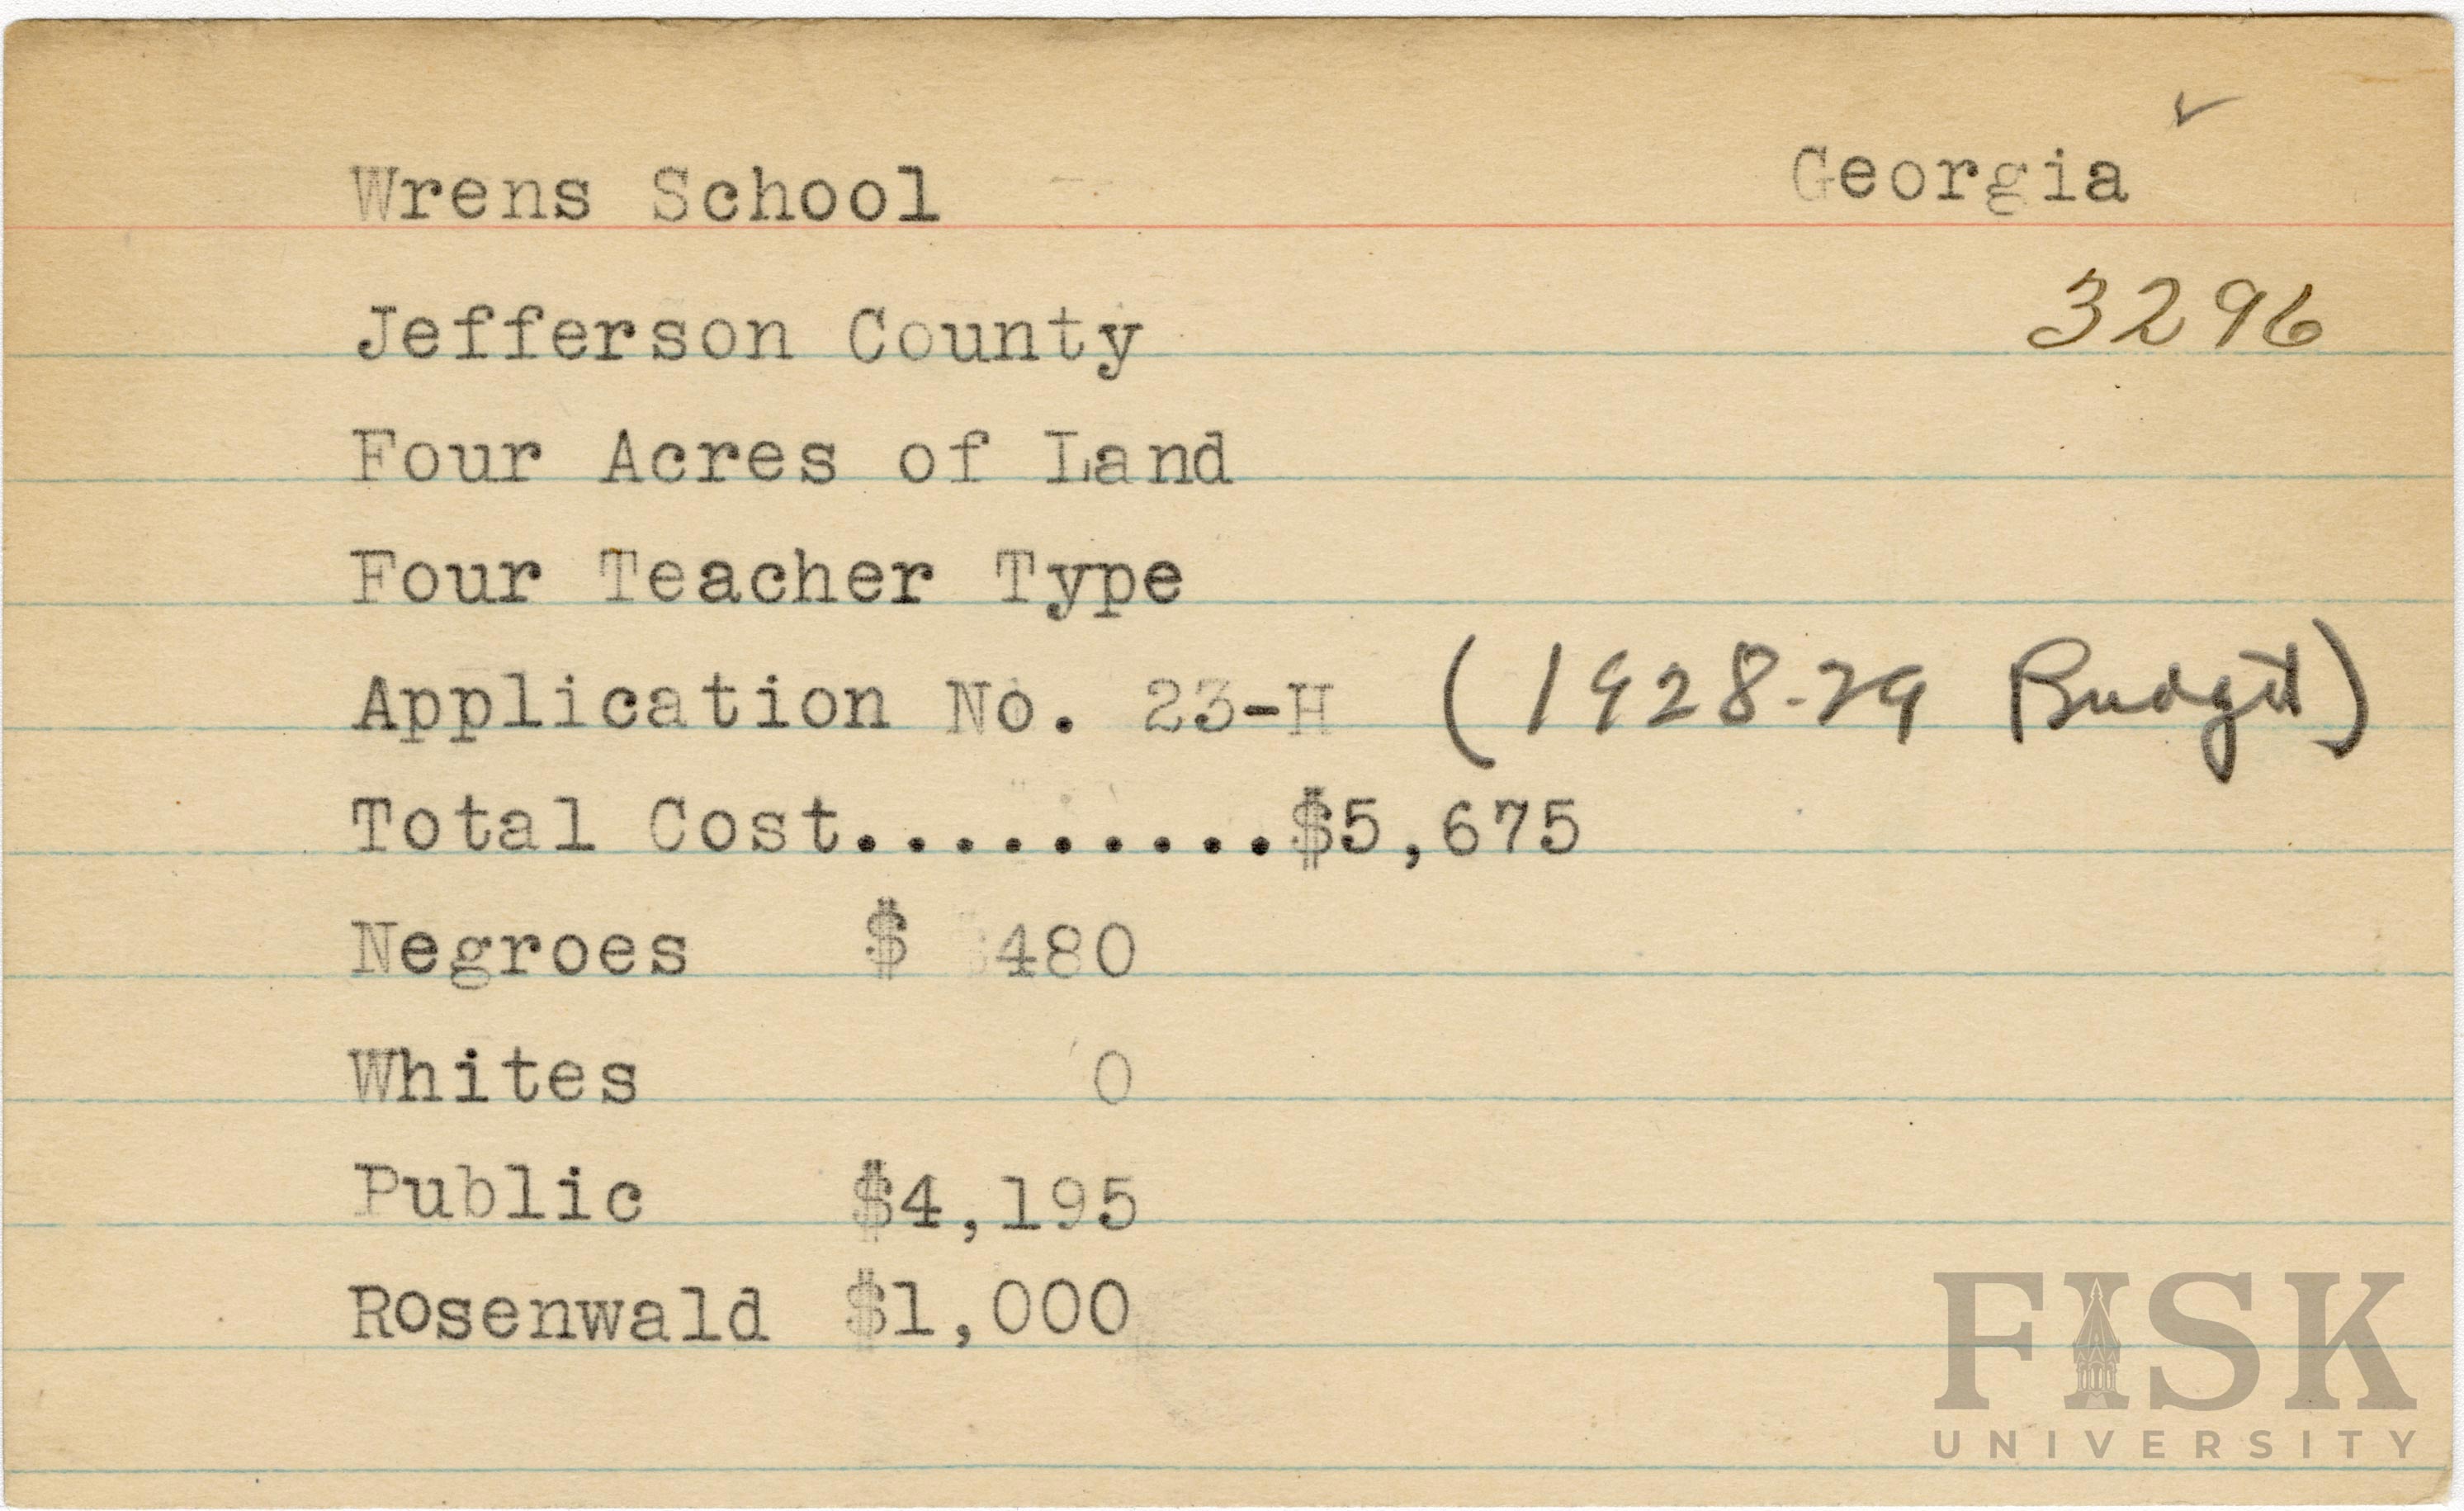 Wrens School Georgia ✓
Jefferson County 3296
Four Acres of Land
Four Teacher Type
Application No. 23-H (1928-29 Budget)
Total Cost..........$5,675
Negroes $ 480
Whites 0
Public $4,195
Rosenwald $1,000
FISK
UNIVERSITY